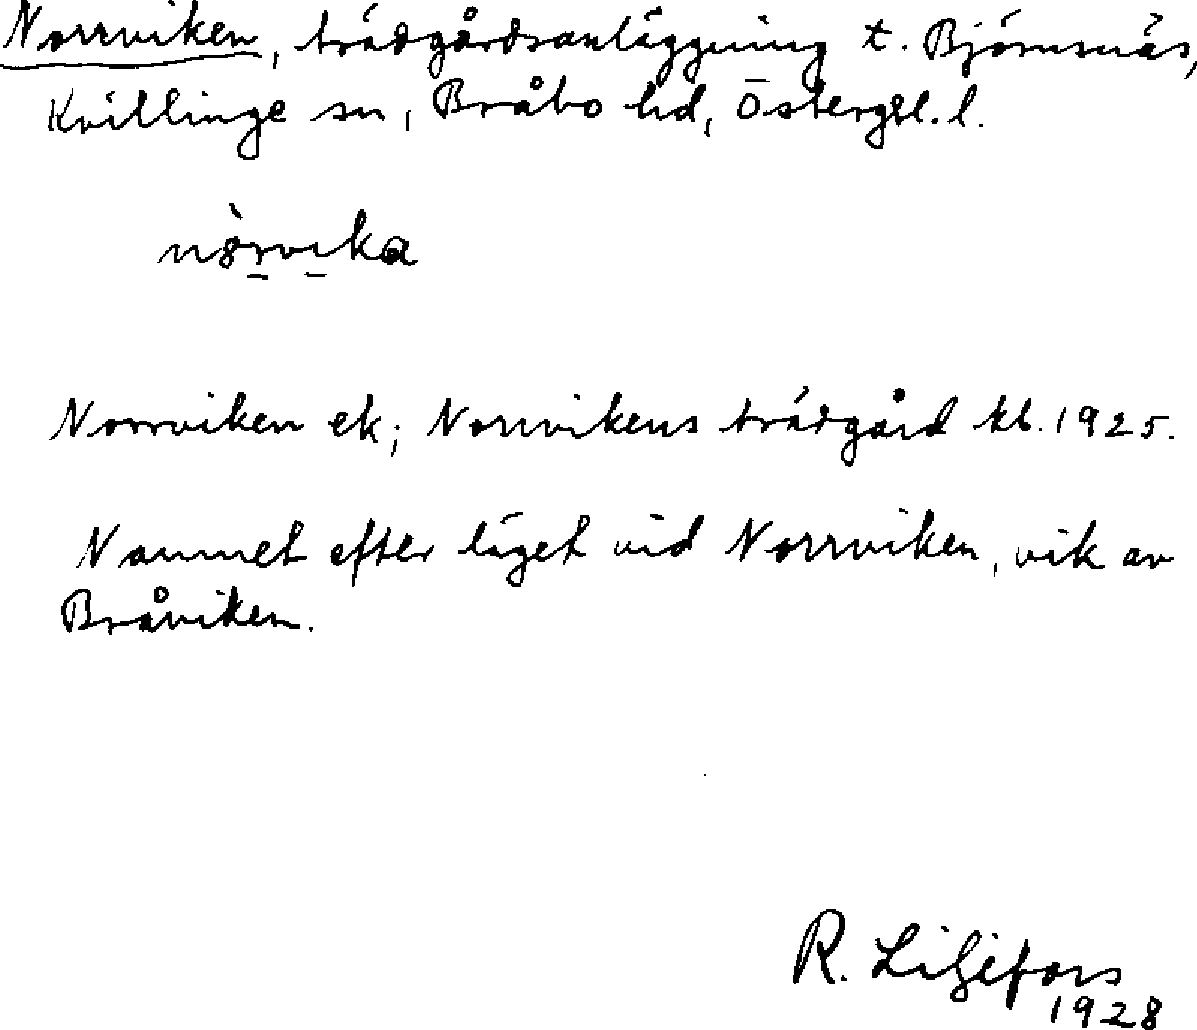 Norrviken, trädgårdsanläggning t. Björnsnäs,
Kvillinge sn, Bråbo hd, Östergtl. l.
nòrvika
Norrviken ek; Norrvikens trädgård kb. 1925.
Namnet efter läget vid Norrviken, vik av
Bråviken.
R. Liljefors
1928